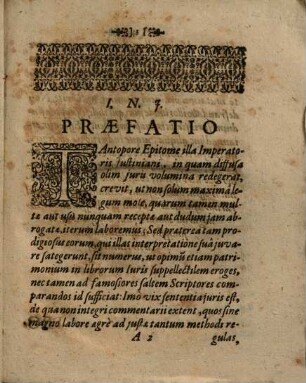 I. N. J.
PRÆFATIO
TAntopore Epitome illa Imperato-
ris Justiniani, in quam diffusa
olim juris volumina redegerat,
crevit, ut non solum maxima le-
gum mole, quarum tamen mul-
tæ aut usu nunquam receptæ aut dudum jam ab-
rogatæ, iterum laboremus; Sed præterea tam pro-
digiosus eorum, qui illas interpretatione suâ juva-
re sategerunt, sit numerus, ut opimũ etiam patri-
monium in librorum Juris suppellectilem eroges,
nec tamen ad famosiores saltem Scriptores com-
parandos id sufficiat: Imò vix sententia juris est,
de qua non integri commentarii extent, quos sine
magno labore agrè ad justa tantum methodi re-
A 2 gulas,